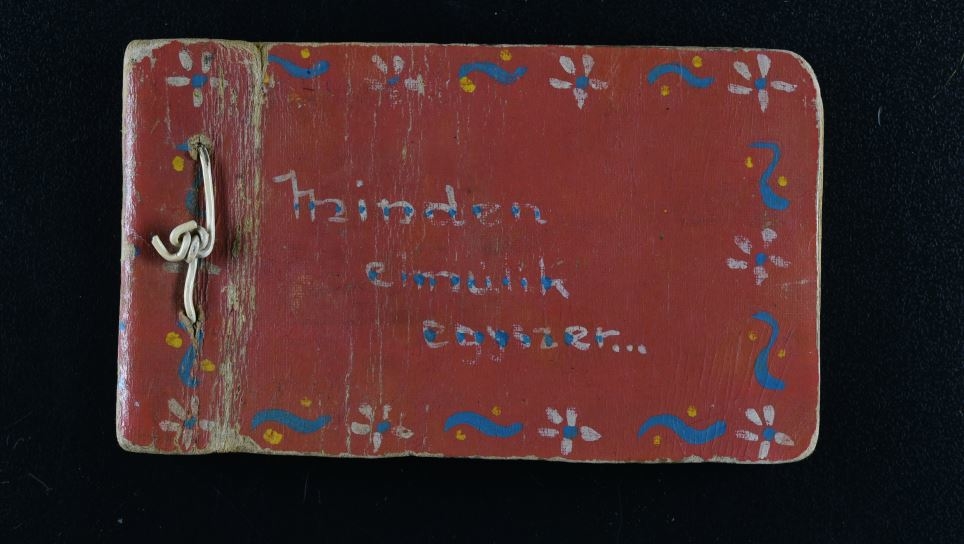 Minden
elmúlik
egyszer...